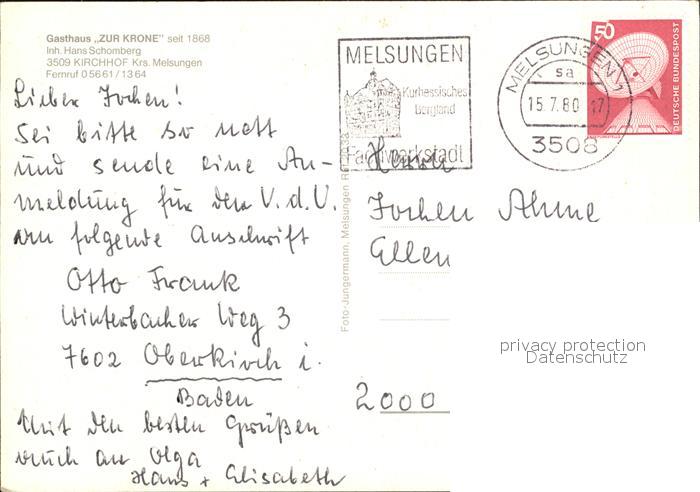 Gasthaus „ZUR KRONE" seit 1868
Inh. Hans Schomberg
3509 KIRCHHOF Krs. Melsungen
Fernruf 0 56 61 / 13 64
Lieber Jochen!
Sei bitte so nett
und sende eine An-
meldung für den V.d.U.
an folgende Anschrift
Otto Frank
Winterbacher Weg 3
7602 Oberkirch i.
Baden
Mit den besten Grüßen
auch an Olga
Hans + Elisabeth
Foto-Jungermann, Melsungen
MELSUNGEN
Kurhessisches
Bergland
Fachwerkstadt
MELSUNGEN 1
sa
15.7.80 17
3508
50
DEUTSCHE BUNDESPOST
Herrn
Jochen
Ellen
2000
privacy protection
Datenschutz